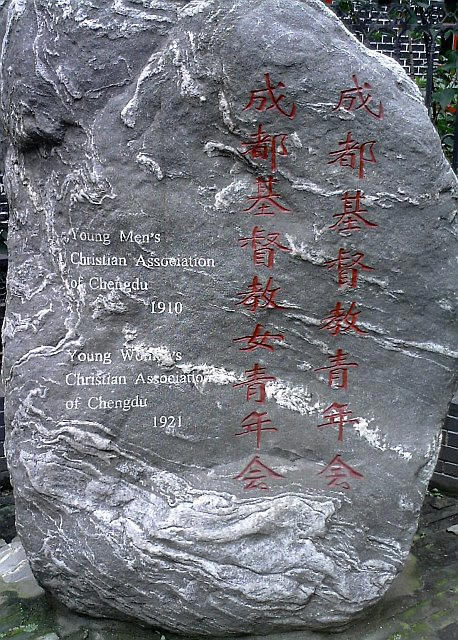 成都基督教青年会
成都基督教女青年会
Young Men's
Christian Association
of Chengdu
1910
Young Women's
Christian Association
of Chengdu
1921